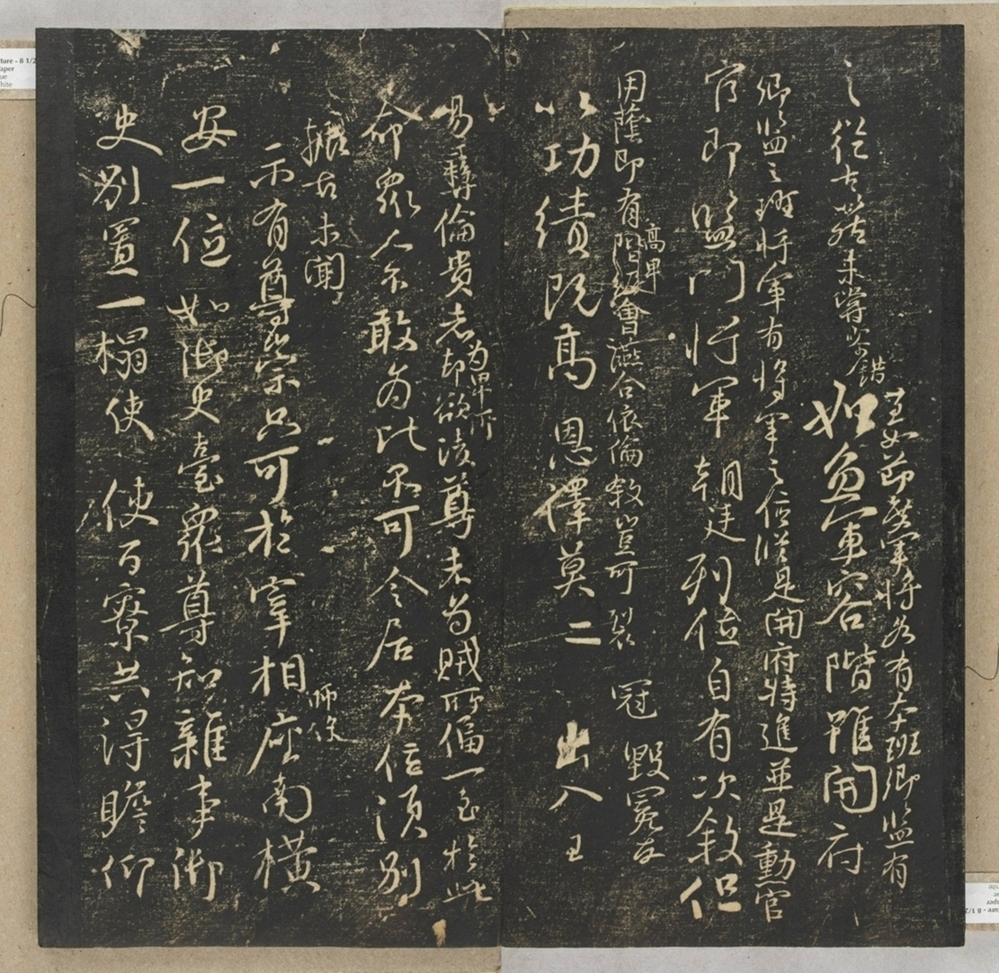 之從古以然未嘗參錯
至如節度軍將各有本班卿監有
如魚軍容階雖開府
卿監之班將軍有將軍之位縱是開府特進並是勳官
官即監門將軍朝廷列位自有次敘但
用蔭即有高卑會讌合依倫敘豈可裂冠毀冕反
以功績既高恩澤莫二出入王
易彝倫貴者為卑所凌尊者為賊所偪一至於此
命眾人不敢為比不可令居本位須別
振古未聞
示有尊崇只可於宰相師保座南橫
安一位如御史臺眾尊知雜事御
史別置一榻使使百寮共得瞻仰